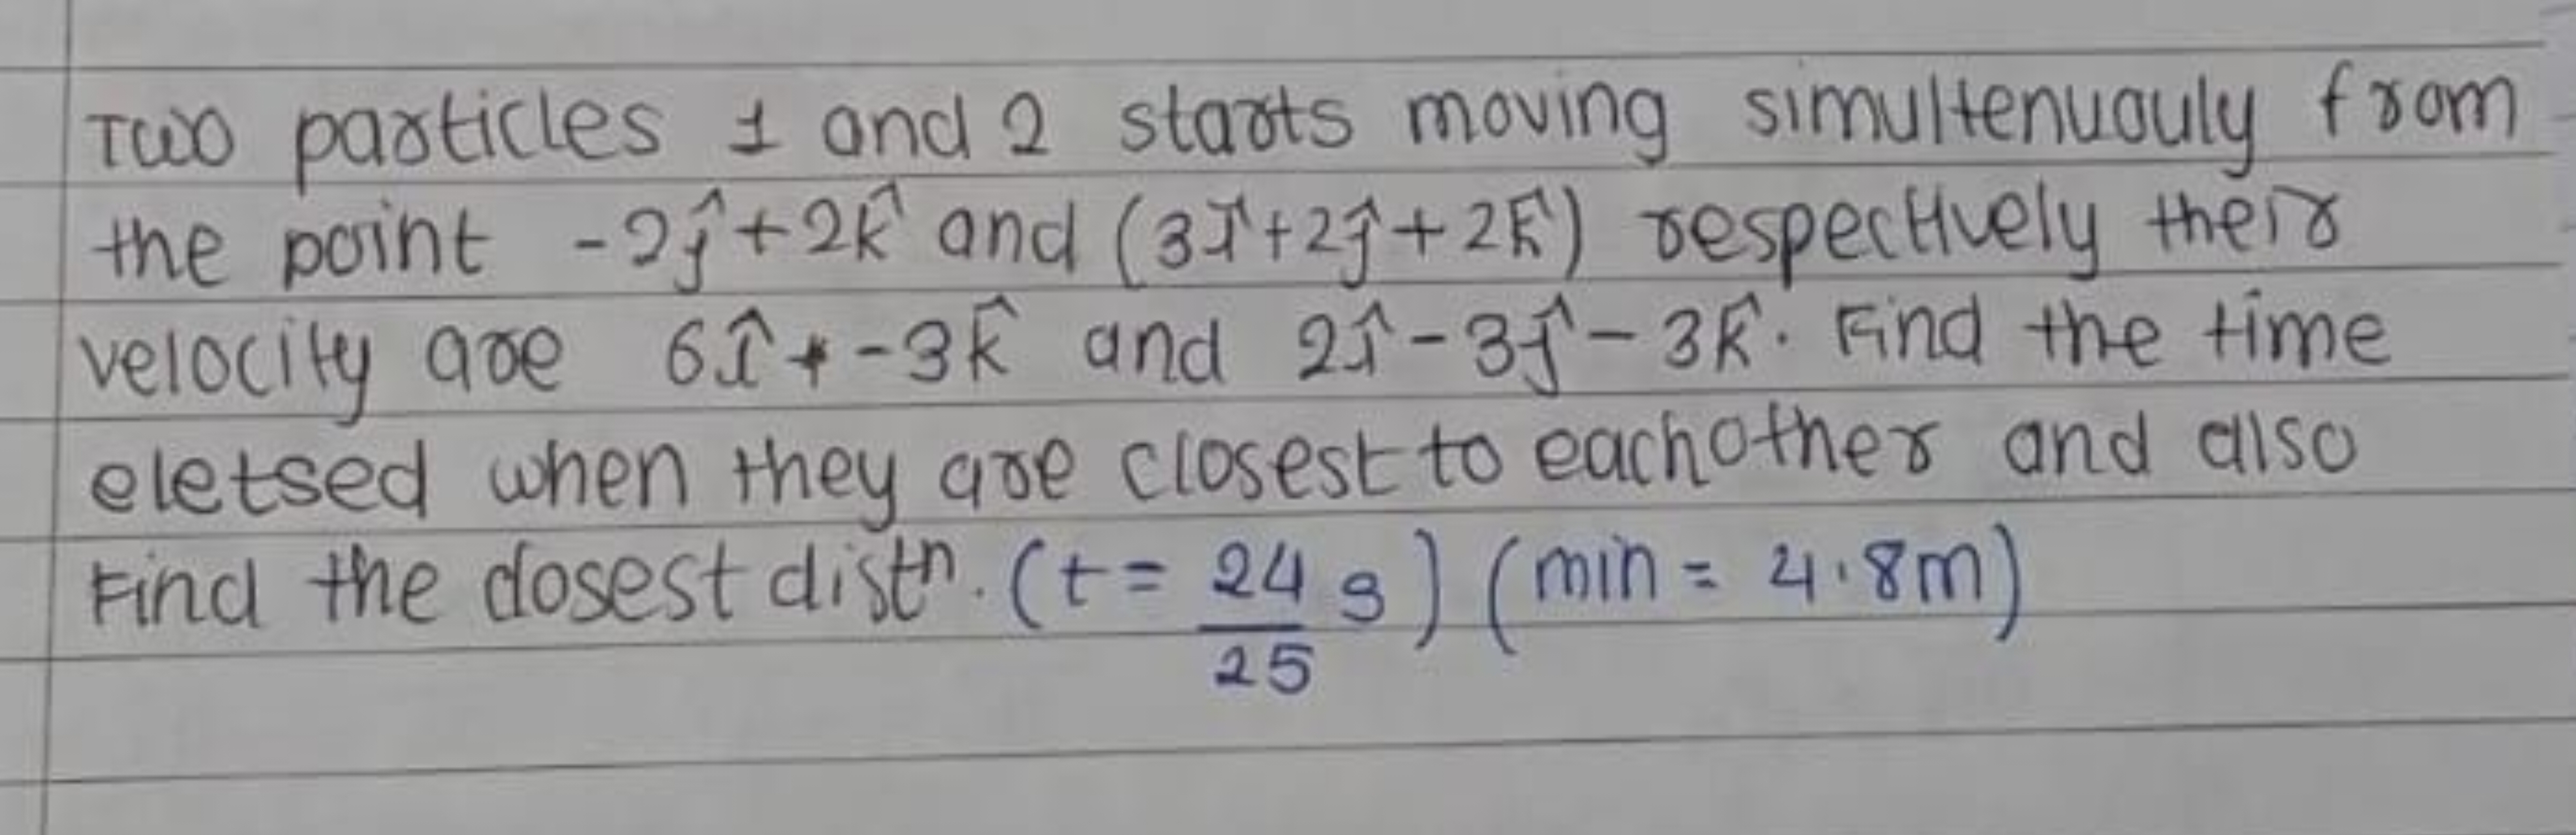 Two particles 1 and 2 starts moving simultenuouly from
the point -2ĵ+2k̂ and (3î+2ĵ+2k̂) respectively their
velocity are 6î+-3k̂ and 2î-3ĵ-3k̂. Find the time
eletsed when they are closest to eachother and also
Find the closest distⁿ. (t= 24/25 s) (min = 4.8m)